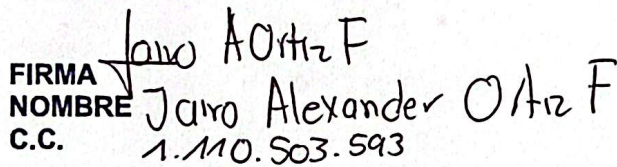 FIRMA Jairo A Ortiz F
NOMBRE Jairo Alexander Ortiz F
C.C. 1.110.503.593